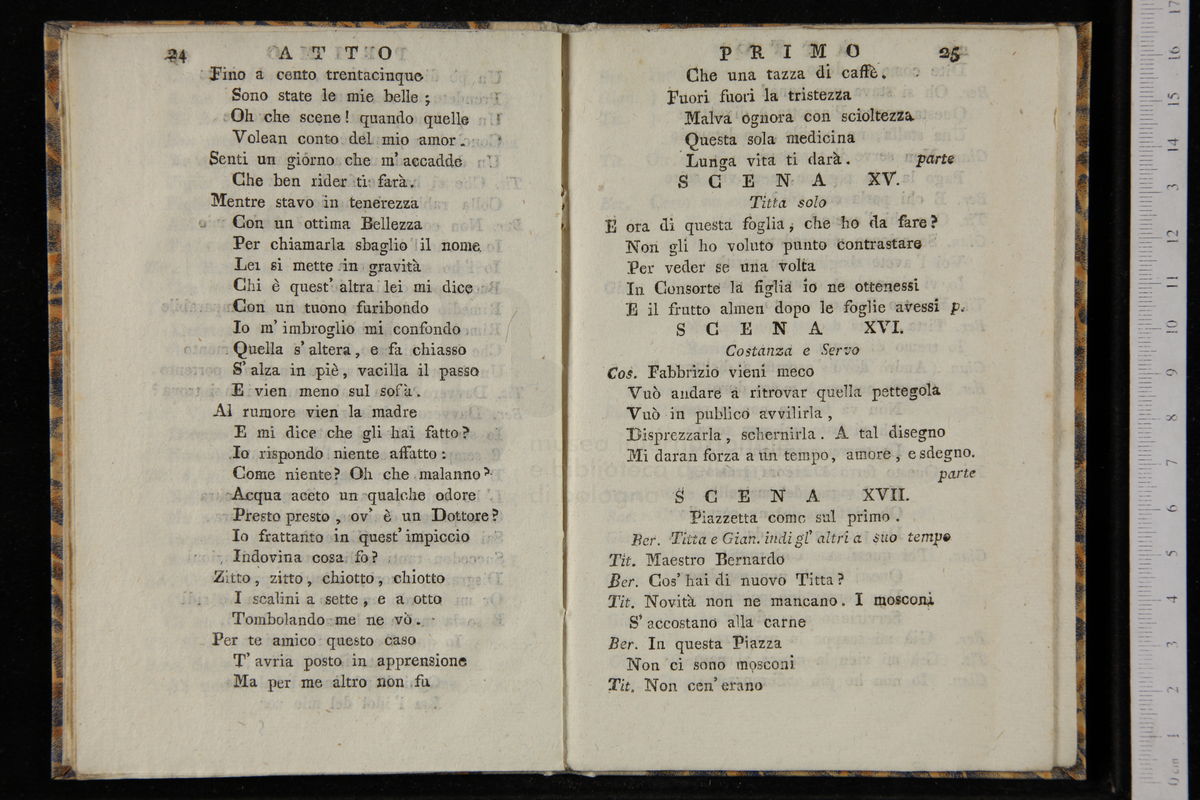 24 ATTO
Fino a cento trentacinque
Sono state le mie belle ;
Oh che scene! quando quelle
Volean conto del mio amor.
Senti un giorno che m' accadde
Che ben rider ti farà.
Mentre stavo in tenerezza
Con un ottima Bellezza
Per chiamarla sbaglio il nome
Lei si mette in gravità
Chi è quest' altra lei mi dice
Con un tuono furibondo
Io m' imbroglio mi confondo
Quella s' altera, e fa chiasso
S' alza in piè, vacilla il passo
E vien meno sul sofà.
Al rumore vien la madre
E mi dice che gli hai fatto?
Io rispondo niente affatto :
Come niente? Oh che malanno?
Acqua aceto un qualche odore
Presto presto, ov' è un Dottore?
Io frattanto in quest' impiccio
Indovina cosa fo?
Zitto, zitto, chiotto, chiotto
I scalini a sette, e a otto
Tombolando me ne vò.
Per te amico questo caso
T' avria posto in apprensione
Ma per me altro non fu
PRIMO 25
Che una tazza di caffè.
Fuori fuori la tristezza
Malva ognora con scioltezza
Questa sola medicina
Lunga vita ti darà. parte
SCENA XV.
Titta solo
E ora di questa foglia, che ho da fare?
Non gli ho voluto punto contrastare
Per veder se una volta
In Consorte la figlia io ne ottenessi
E il frutto almen dopo le foglie avessi p.
SCENA XVI.
Costanza e Servo
Cos. Fabbrizio vieni meco
Vuò andare a ritrovar quella pettegola
Vuò in publico avvilirla,
Disprezzarla, schernirla. A tal disegno
Mi daran forza a un tempo, amore, e sdegno.
parte
SCENA XVII.
Piazzetta come sul primo.
Ber. Titta e Gian. indi gl' altri a suo tempo
Tit. Maestro Bernardo
Ber. Cos' hai di nuovo Titta?
Tit. Novità non ne mancano. I mosconi
S' accostano alla carne
Ber. In questa Piazza
Non ci sono mosconi
Tit. Non cen' erano